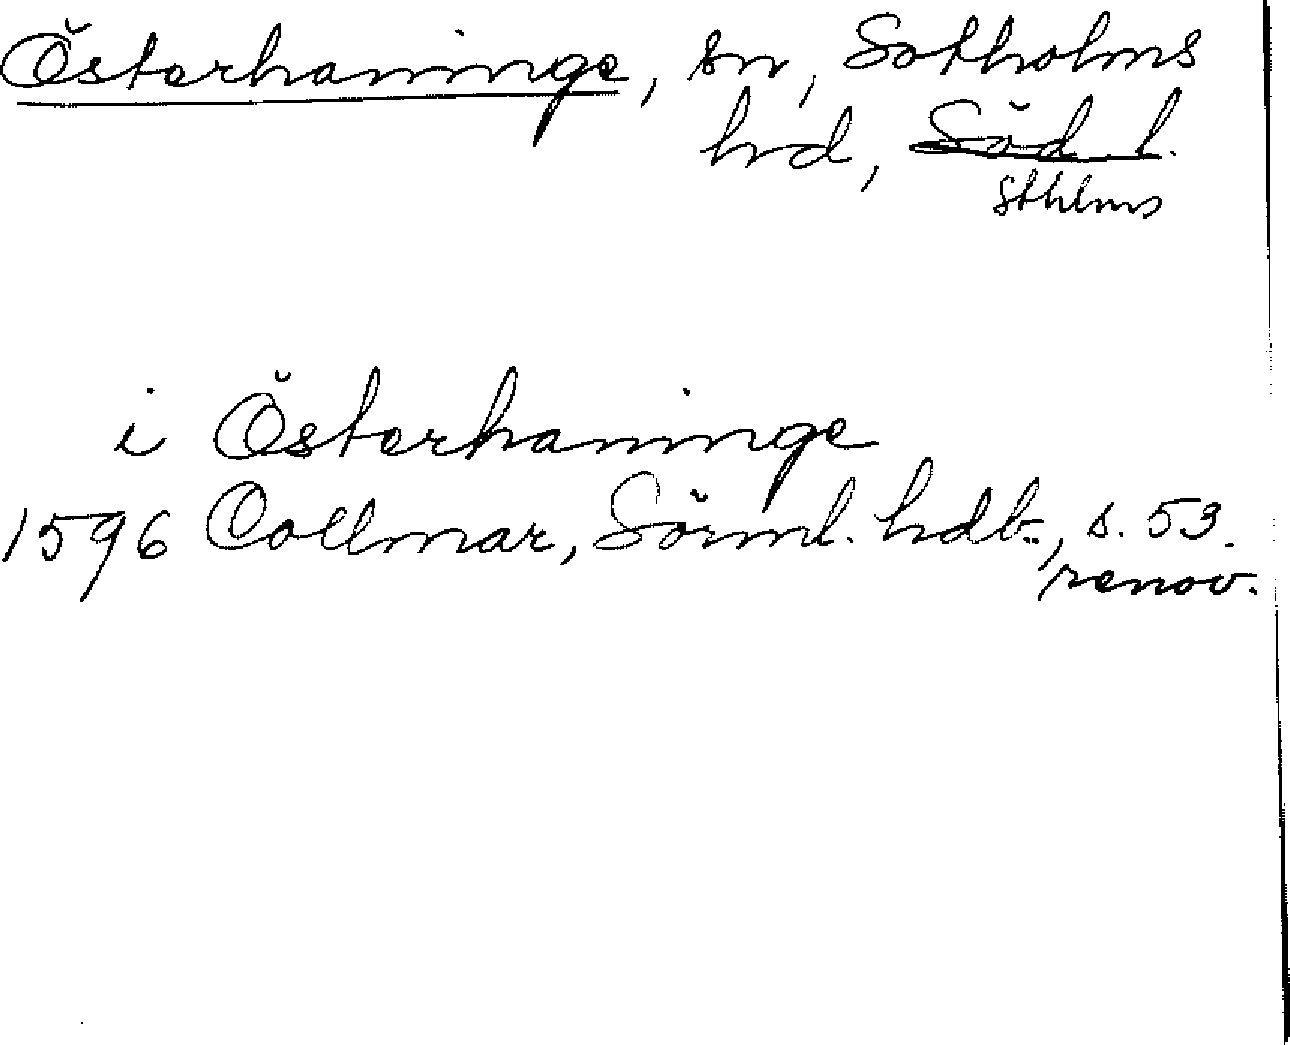 Österhaninge, sn, Sotholms
hd, Söd l.
Sthlms
i Österhaninge
1596 Collmar, Sörml. hdl:, s. 53.
renov.